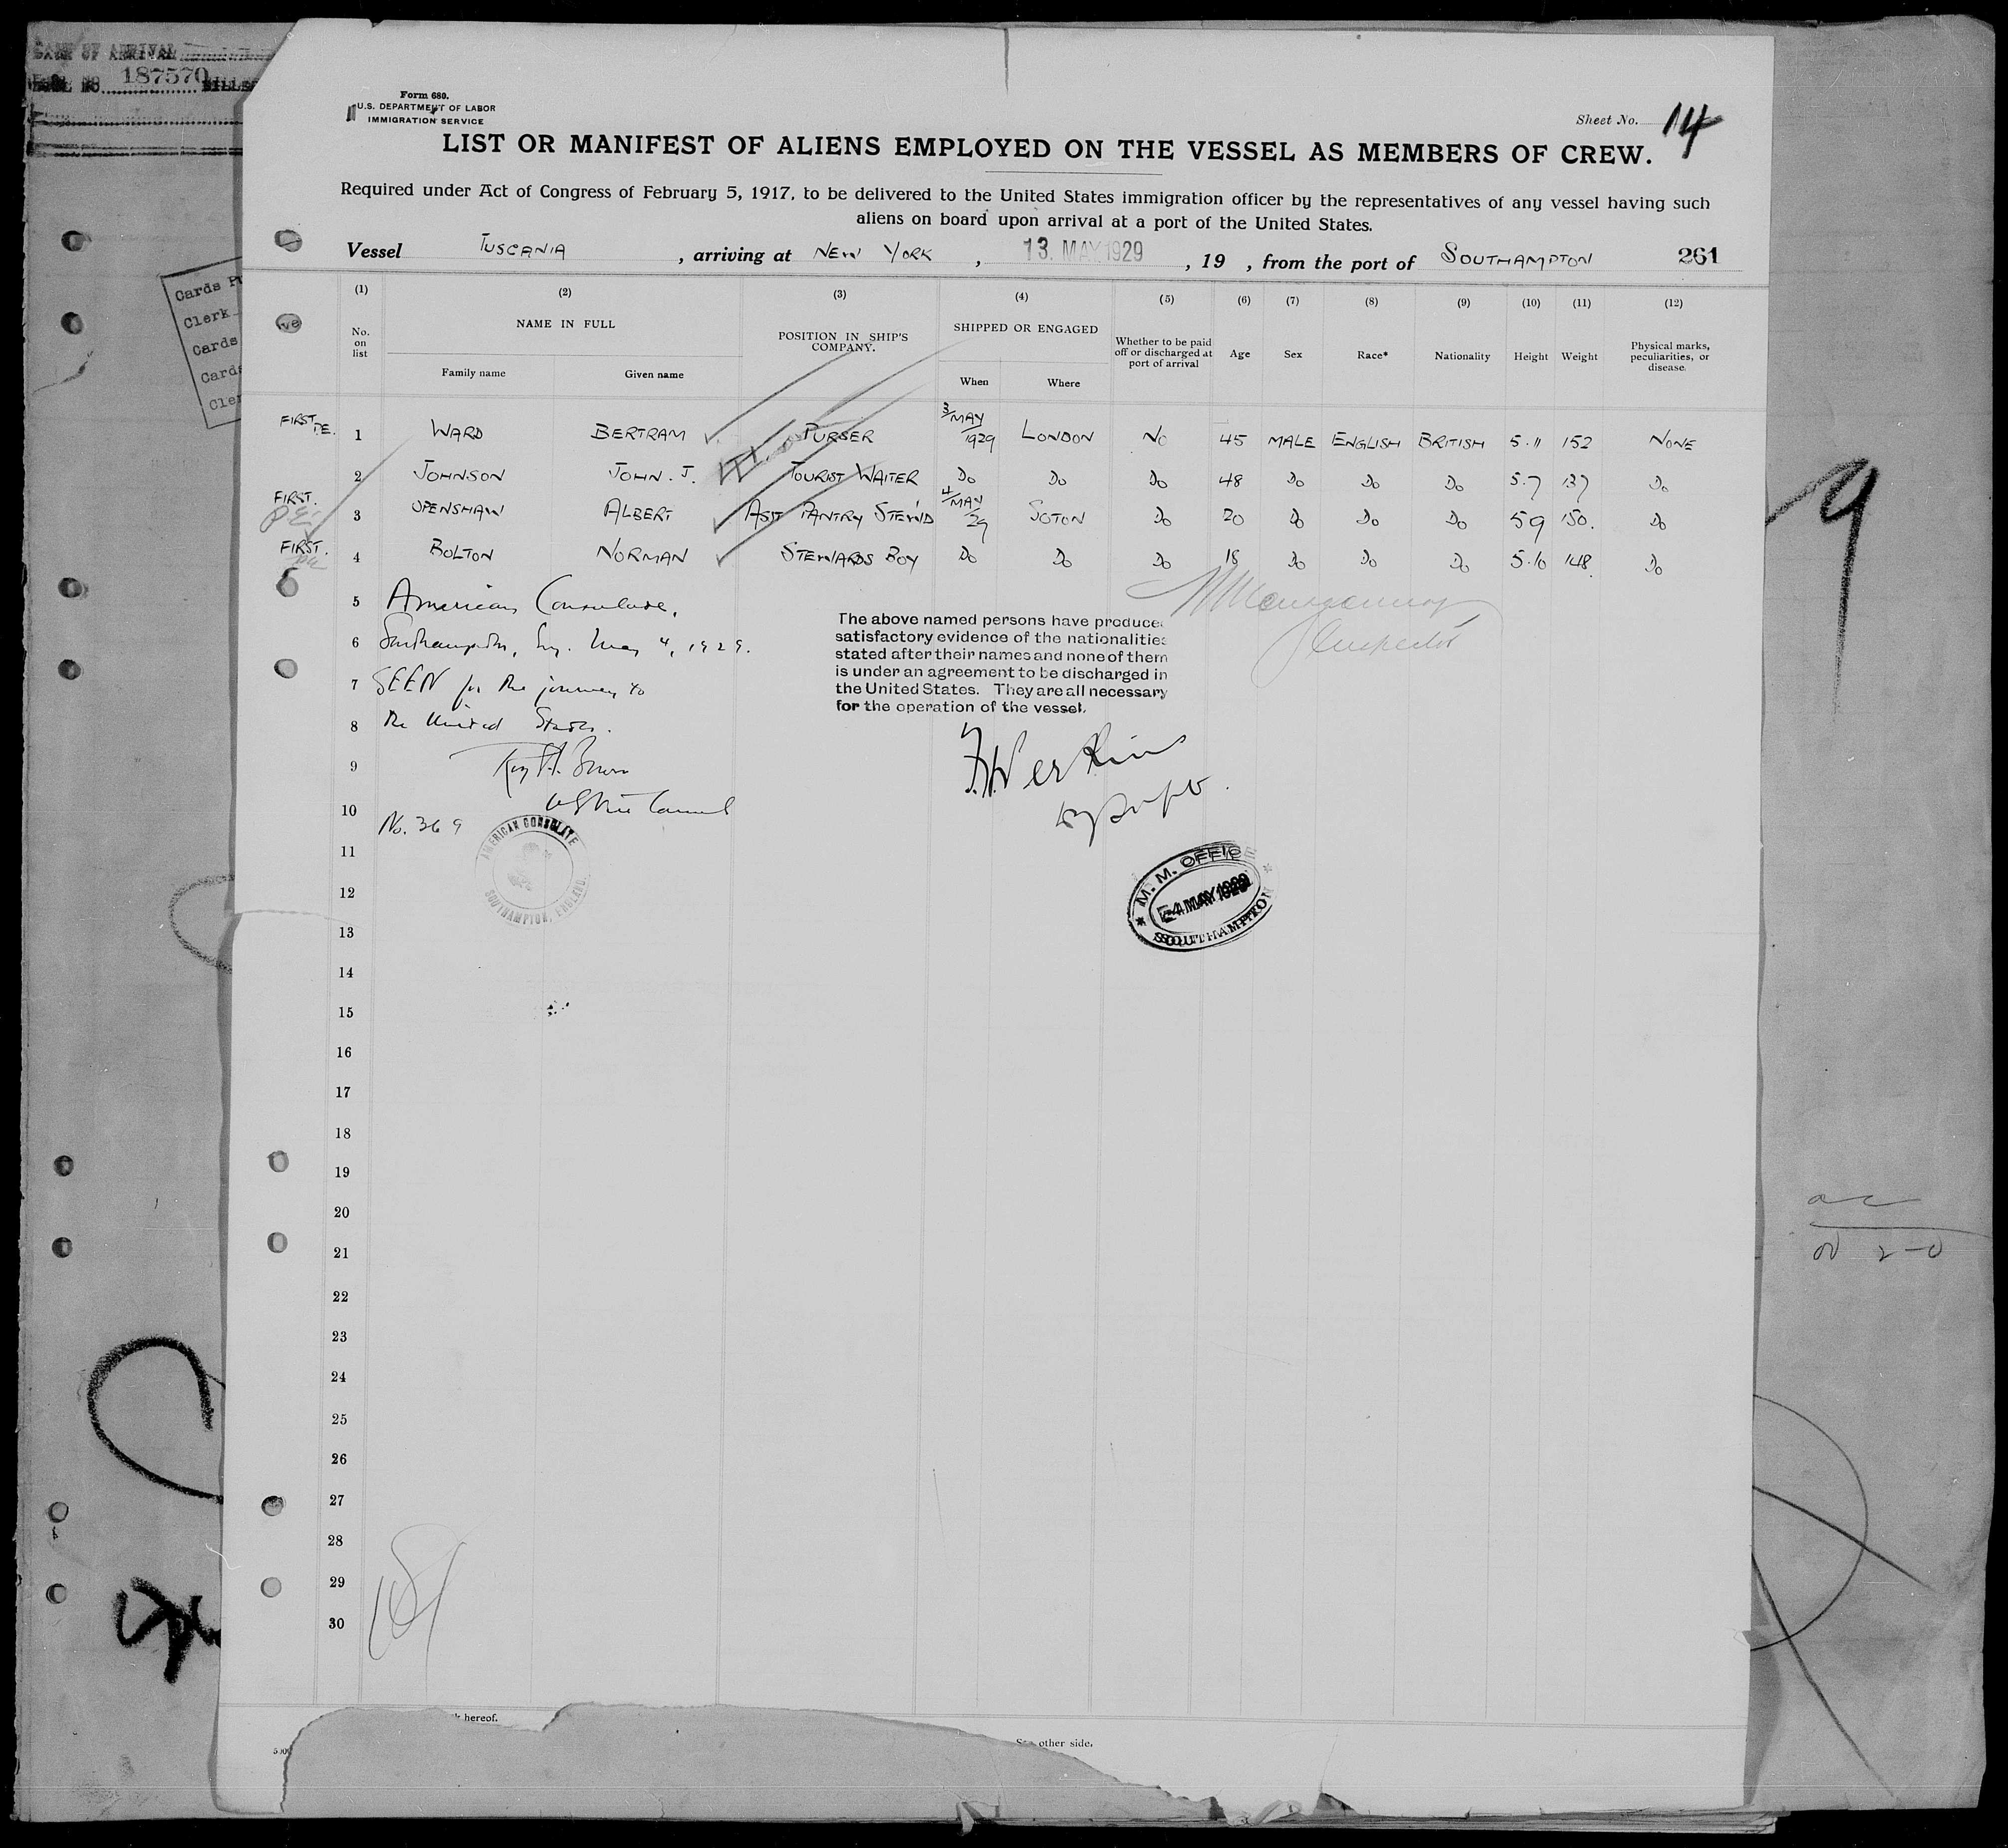 DATE OF ARRIVAL
187570
Cards
Clerk
Cards
Cards
Form 680.
U.S. DEPARTMENT OF LABOR
IMMIGRATION SERVICE
Sheet No. 14
LIST OR MANIFEST OF ALIENS EMPLOYED ON THE VESSEL AS MEMBERS OF CREW.
Required under Act of Congress of February 5, 1917, to be delivered to the United States immigration officer by the representatives of any vessel having such
aliens on board upon arrival at a port of the United States.
Vessel TUSCANIA, arriving at NEW YORK, 13. MAY 1929, 19 , from the port of SOUTHAMPTON 261
(1) (2) (3) (4) (5) (6) (7) (8) (9) (10) (11) (12)
No. on list NAME IN FULL Family name Given name POSITION IN SHIP'S COMPANY. SHIPPED OR ENGAGED When Where Whether to be paid off or discharged at port of arrival Age Sex Race* Nationality Height Weight Physical marks, peculiarities, or disease.
FIRST 1 WARD BERTRAM PURSER 3/MAY 1929 LONDON NO 45 MALE ENGLISH BRITISH 5.11 152 NONE
2 JOHNSON JOHN. J. TOURIST WAITER Do Do Do 48 Do Do Do 5.7 137 Do
FIRST. 3 OPENSHAW ALBERT ASST PANTRY STEWD 4/MAY 29 SOTON Do 20 Do Do Do 5 9 150. Do
FIRST. 4 BOLTON NORMAN STEWARDS BOY Do Do Do 18 Do Do Do 5.10 148. Do
5 American Consulate,
6 Southampton, Eng. May 4, 1929.
7 SEEN for the journey to
8 the United States.
9
10
No. 369
The above named persons have produced
satisfactory evidence of the nationalities
stated after their names and none of them
is under an agreement to be discharged in
the United States. They are all necessary
for the operation of the vessel.
Inspector
AMERICAN CONSULATE
SOUTHAMPTON, ENGLAND.
M. M. OFFICE
4 MAY 1929
SOUTHAMPTON
11
12
13
14
15
16
17
18
19
20
21
22
23
24
25
26
27
28
29
30
9
hereof.
See other side.